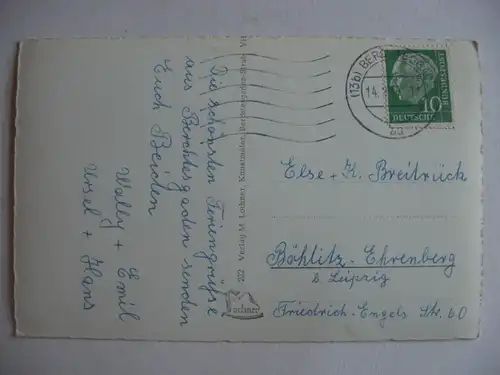 Die schönsten Feriengrüße
aus Berchtesgaden senden
Euch Beiden
Wally + Emil
Ursel + Hans
202 Verlag M. Lochner, Kunstmaler, Berchtesgaden-Strub
Lochner
(13b) BERCHTESGADEN
14.
10
DEUTSCHE
BUNDESPOST
Else + K. Breitrück
Böhlitz-Ehrenberg
b. Leipzig
Friedrich-Engels Str. 60